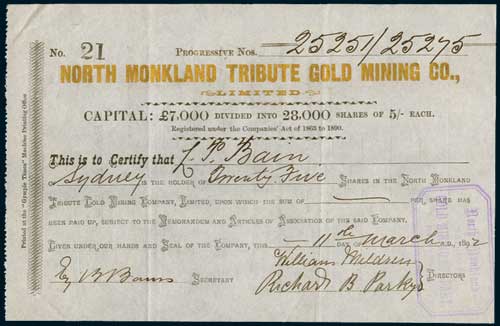 No. 21 Progressive Nos. 25251/25275
NORTH MONKLAND TRIBUTE GOLD MINING CO.,
LIMITED
CAPITAL: £7,000 DIVIDED INTO 28,000 SHARES OF 5/- EACH.
Registered under the Companies' Act of 1863 to 1890.
This is to Certify that L. P. Bain
Sydney IS THE HOLDER OF Twenty Five SHARES IN THE NORTH MONKLAND
TRIBUTE GOLD MINING COMPANY, LIMITED, UPON WHICH THE SUM OF — PER SHARE HAS
BEEN PAID UP, SUBJECT TO THE MEMORANDUM AND ARTICLES OF ASSOCIATION OF THE SAID COMPANY.
GIVEN UNDER OUR HANDS AND SEAL OF THE COMPANY, THIS 11th DAY OF March A.D., 1892
William
SECRETARY
Richard B Parkyn DIRECTORS
Printed at the "Gympie Times" Machine Printing Office